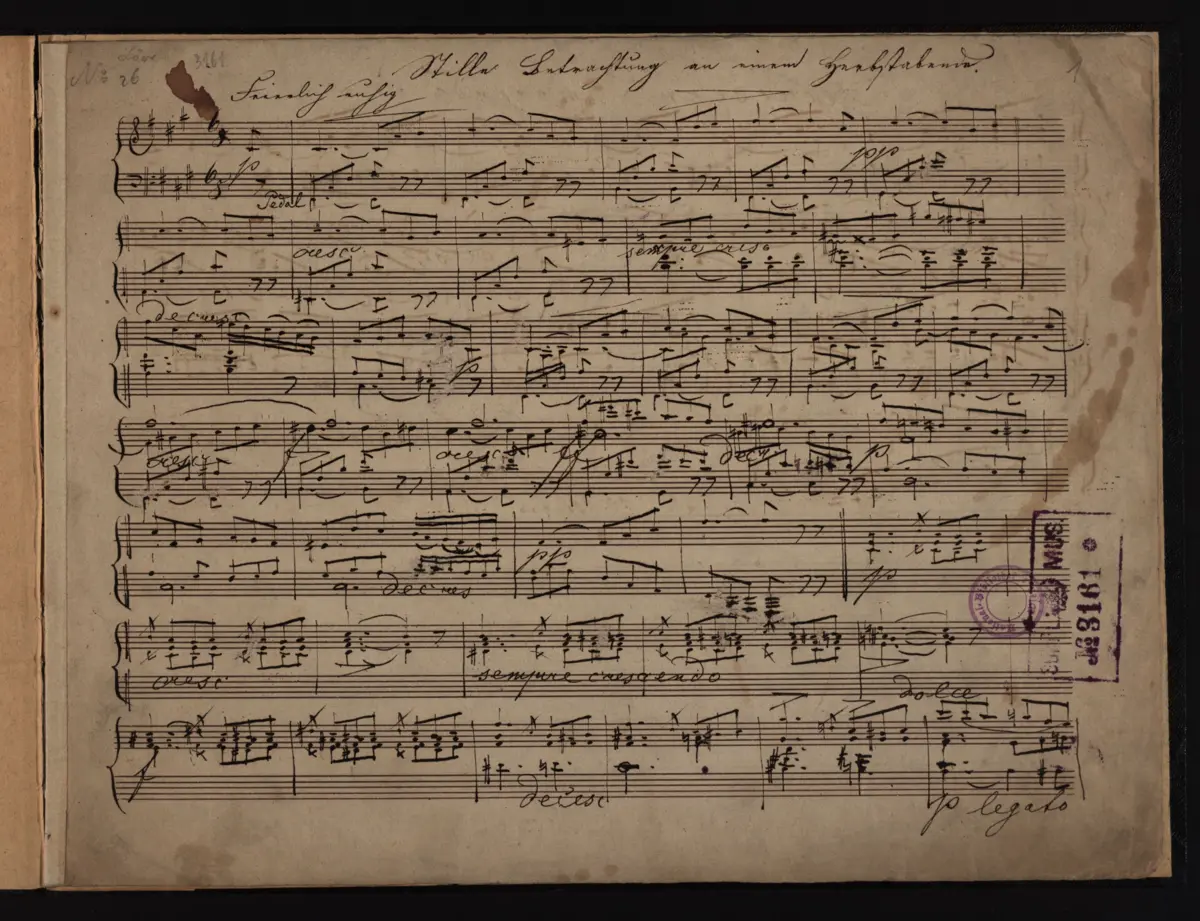 No 26
3161
Stille Betrachtung an einem Herbstabende.
1
Feierlich ruhig
p
pp
Pedal
cresc
sempre cresc
decresc
p
cresc
f
cresc
decresc
p
pp
decresc
p
cresc
sempre crescendo
dolce
f
decresc
p legato
MUS.
No 3161